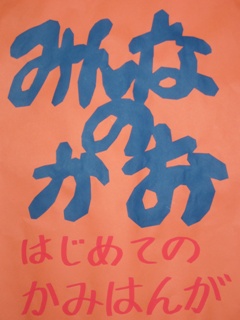 みんな
の
かお
はじめての
かみはんが